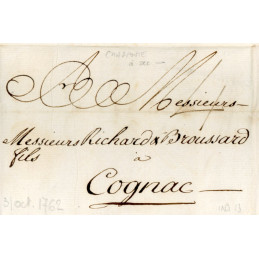 A Messieurs
Messieurs Richard & Broussard
fils
à
Cognac
31 oct. 1762